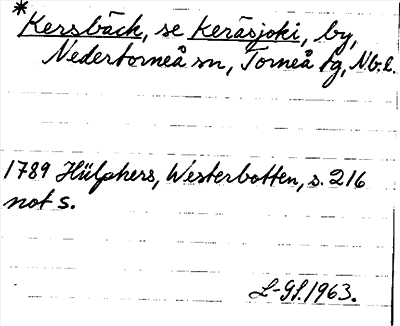 * Kersbäck, se Keräsjoki, by,
Nedertorneå sn, Torneå tg, Nb.l.
1789 Hülphers, Westerbotten, s. 216
not s.
L-Gl. 1963.